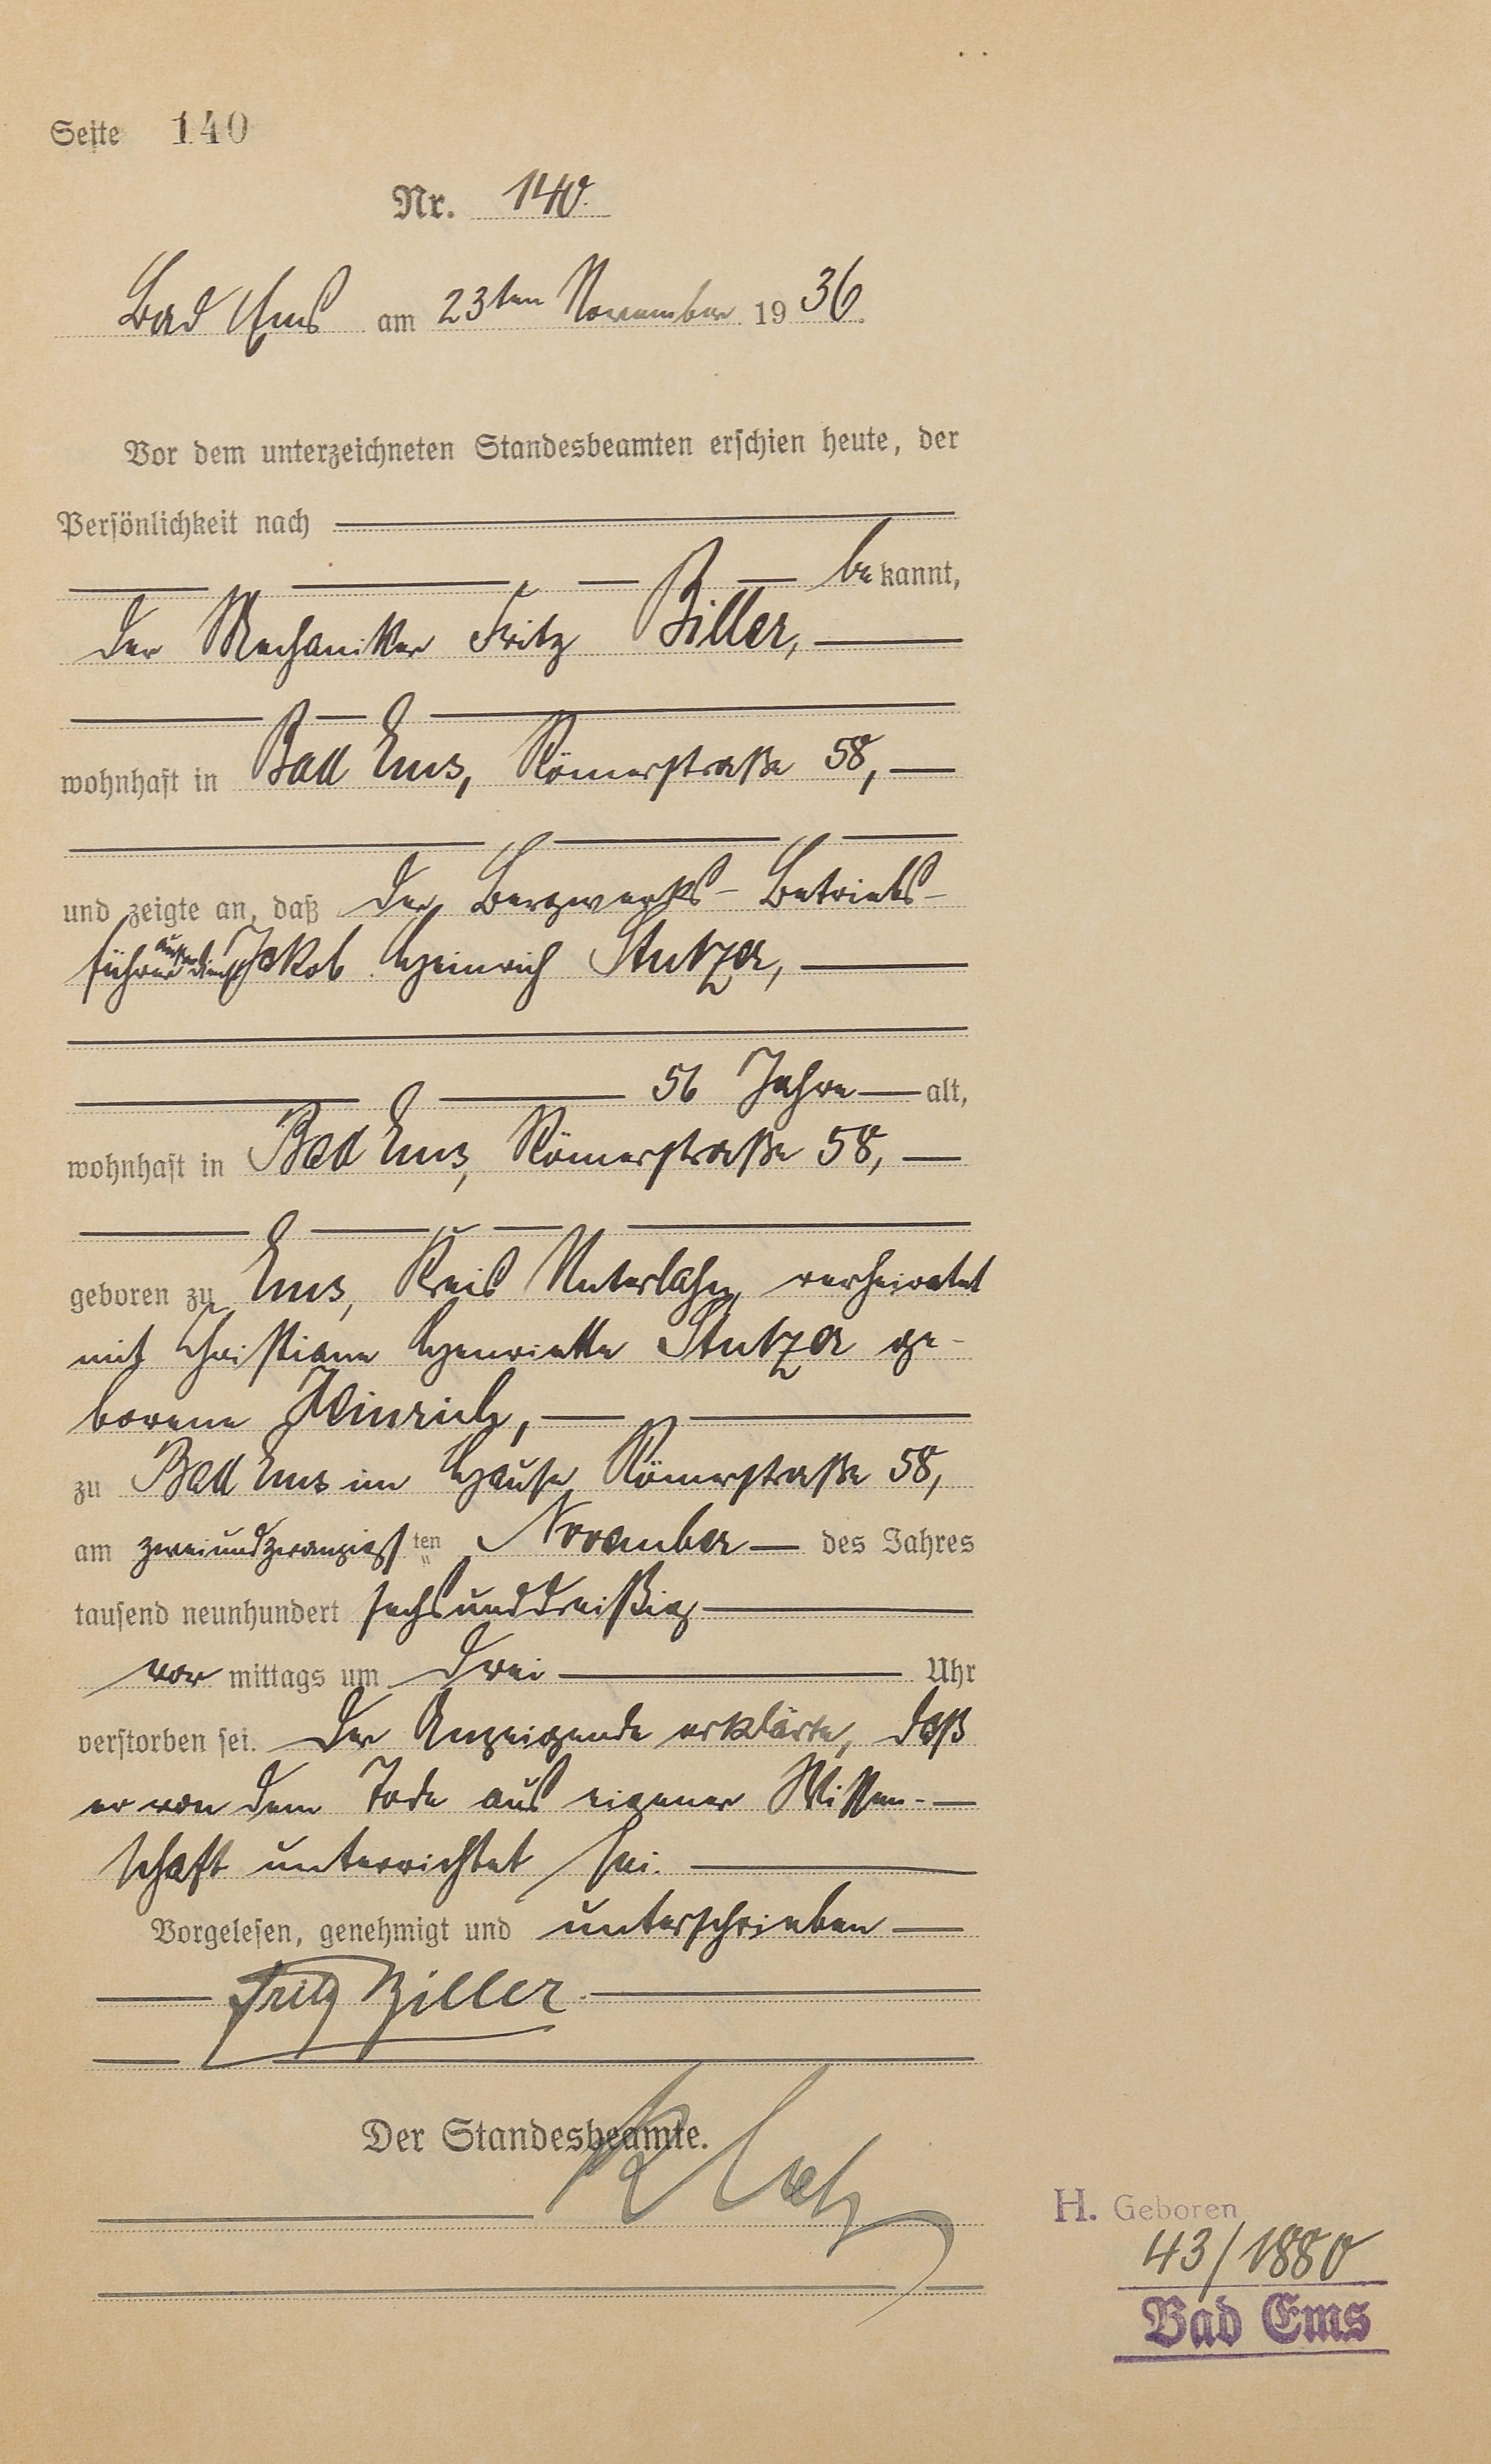 Seite 140
Nr. 140.
Bad Ems am 23ten November 1936.
Vor dem unterzeichneten Standesbeamten erschien heute, der
Persönlichkeit nach
bekannt,
der Mechaniker Fritz Ziller,
wohnhaft in Bad Ems, Römerstraße 58,
und zeigte an, daß der Bergwerks-Betriebs-
führer außer Dienst Jakob Heinrich Stutzer,
56 Jahre alt,
wohnhaft in Bad Ems, Römerstraße 58,
geboren zu Ems, Kreis Unterlahn, verheiratet
mit Christiane Henriette Stutzer ge-
borene Winrich,
zu Bad Ems im Hause Römerstraße 58,
am zweiundzwanzigsten November des Jahres
tausend neunhundert sechsunddreißig
vormittags um drei Uhr
verstorben sei. Der Anzeigende erklärte, daß
er von dem Tode aus eigener Wissen-
schaft unterrichtet sei.
Vorgelesen, genehmigt und unterschrieben
Fritz Ziller.
Der Standesbeamte.
H. Geboren
43/1880
Bad Ems